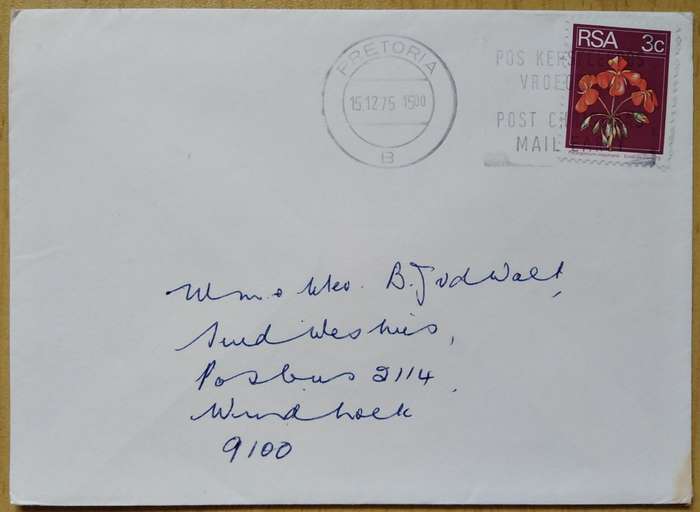 PRETORIA
15.12.75 1500
B
POS
VROEG
POST
MAIL
RSA 3c
Mnr. e Mev. B.J vd Walt,
Suid Weshuis,
Posbus 2114,
Windhoek
9100